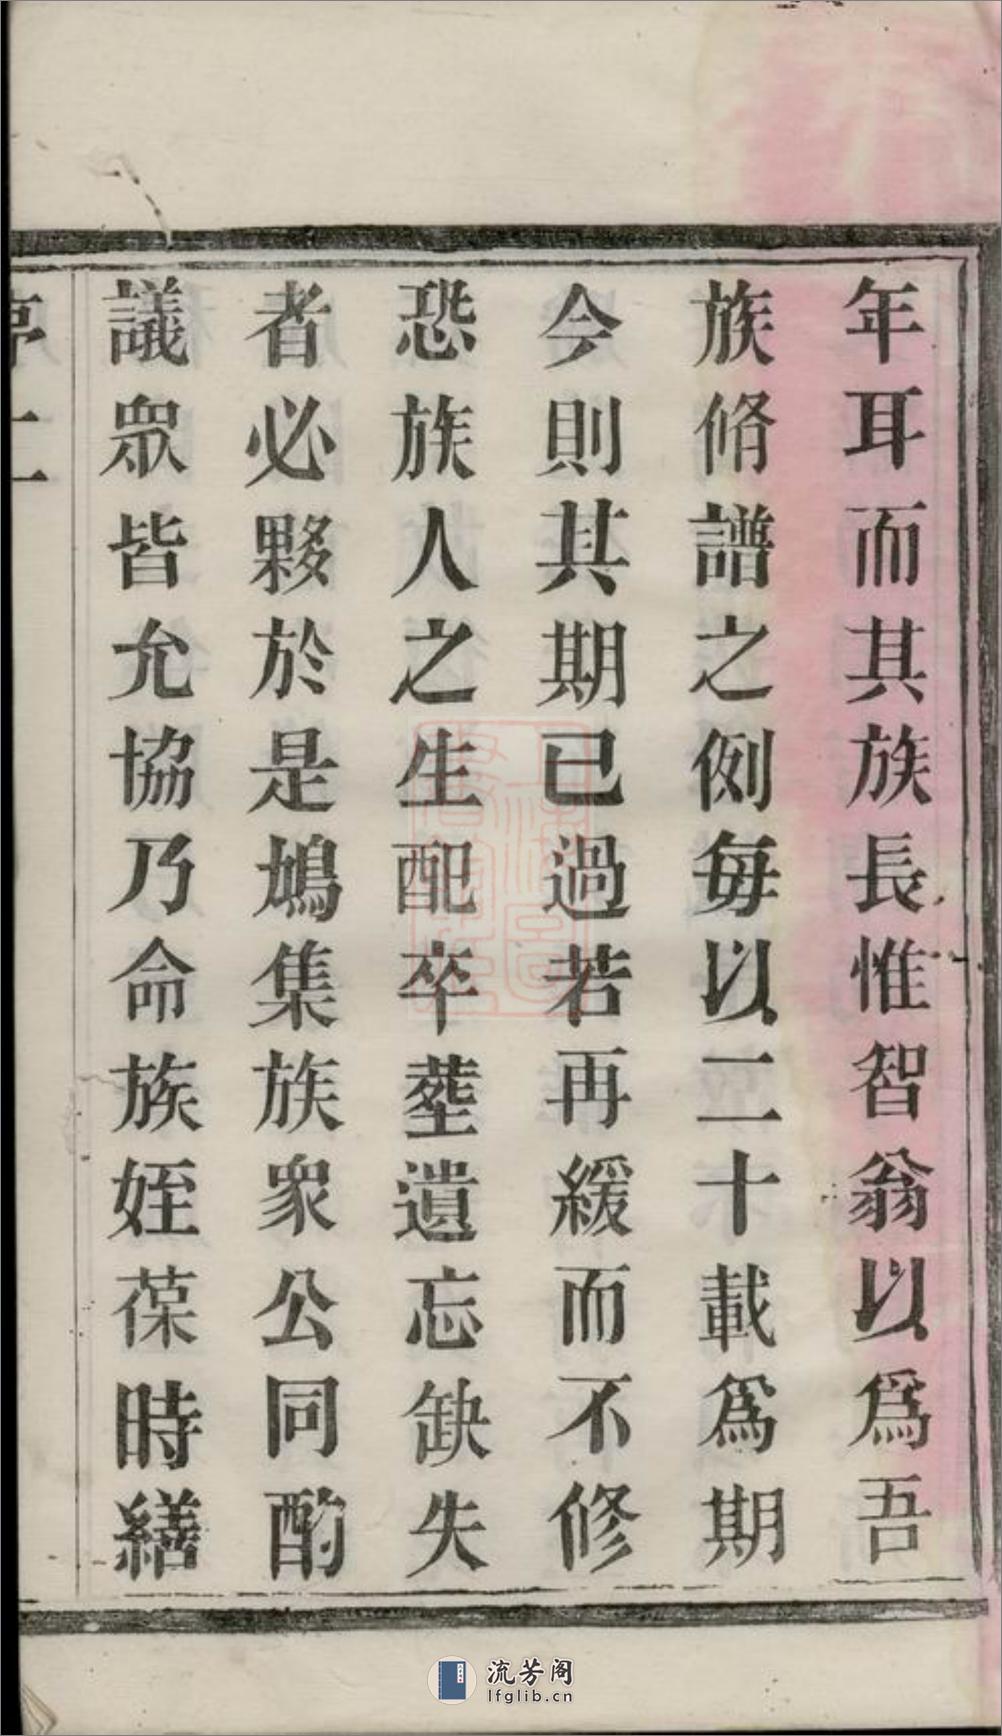 年耳而其族長惟智翁以爲吾
族脩譜之例每以二十載爲期
今則其期已過若再緩而不修
恐族人之生配卒塟遺忘缺失
者必夥於是鳩集族衆公同酌
議眾皆允協乃命族姪葆時繕
序 二
流芳阁
lfglib.cn